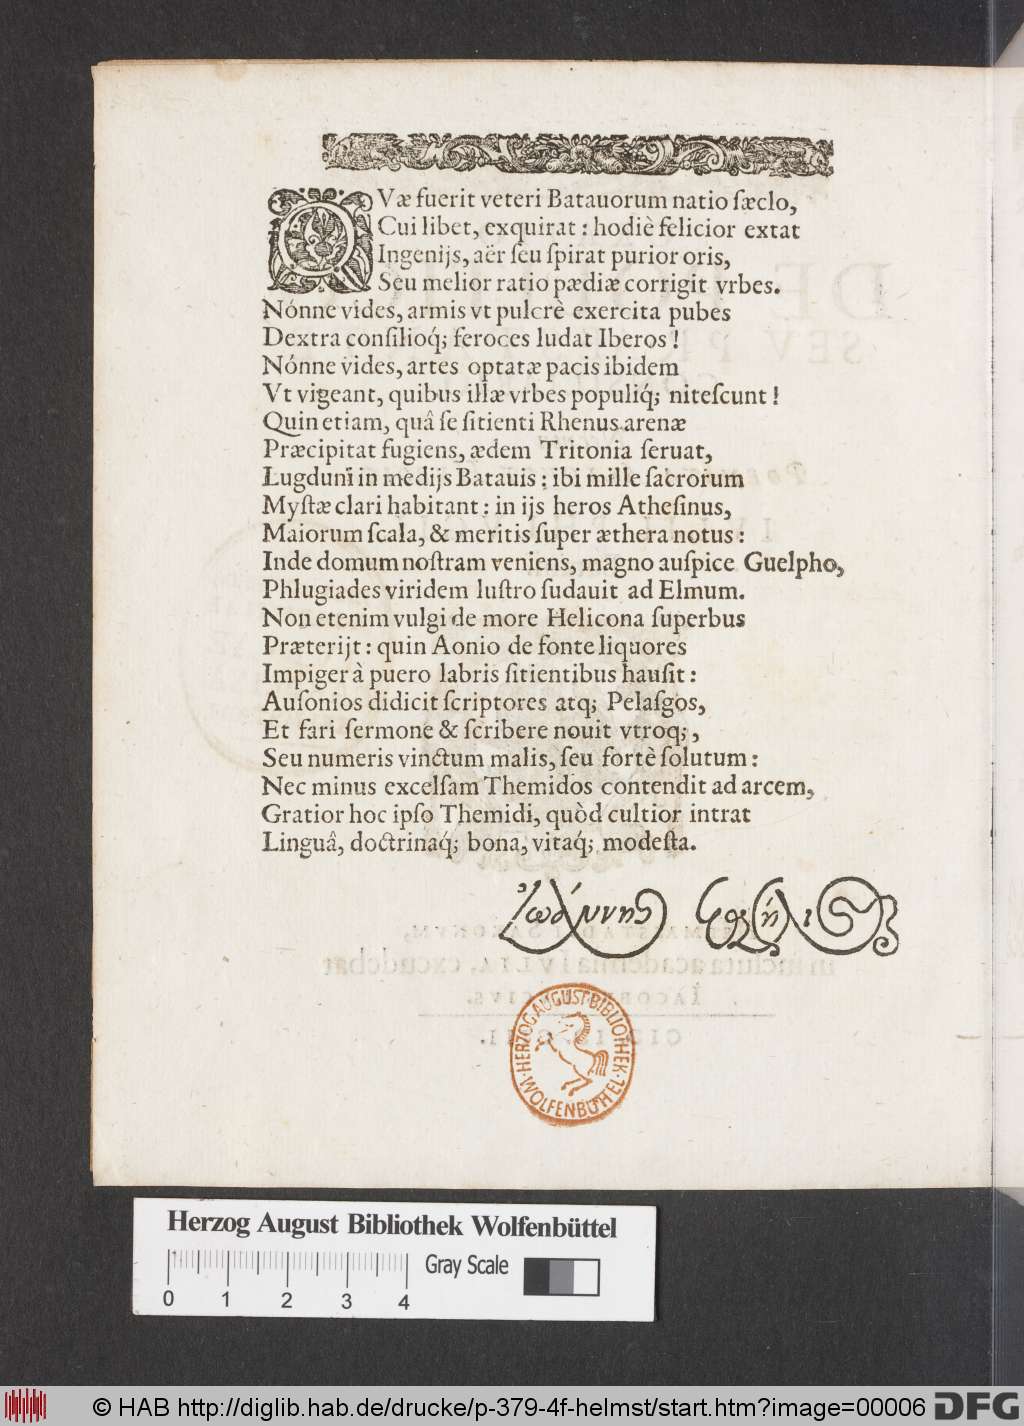 QVæ fuerit veteri Batauorum natio ſæclo,
Cui libet, exquirat: hodiè felicior extat
Ingenijs, aër ſeu ſpirat purior oris,
Seu melior ratio pædiæ corrigit vrbes.
Nónne vides, armis vt pulcrè exercita pubes
Dextra conſilioq́; feroces ludat Iberos!
Nónne vides, artes optatæ pacis ibidem
Vt vigeant, quibus illæ vrbes populiq́; niteſcunt!
Quin etiam, quâ ſe ſitienti Rhenus arenæ
Præcipitat fugiens, ædem Tritonia ſeruat,
Lugduni in medijs Batauis: ibi mille ſacrorum
Myſtæ clari habitant: in ijs heros Atheſinus,
Maiorum ſcala, & meritis ſuper æthera notus:
Inde domum noſtram veniens, magno auſpice Guelpho,
Phlugiades viridem luſtro ſudauit ad Elmum.
Non etenim vulgi de more Helicona ſuperbus
Præterijt: quin Aonio de fonte liquores
Impiger à puero labris ſitientibus hauſit:
Auſonios didicit ſcriptores atq; Pelaſgos,
Et fari ſermone & ſcribere nouit vtroq;,
Seu numeris vinctum malis, ſeu fortè ſolutum:
Nec minus excelſam Themidos contendit ad arcem,
Gratior hoc ipſo Themidi, quòd cultior intrat
Linguâ, doctrinaq́; bona, vitaq́; modeſta.
Ἰωάννης
HERZOG·AUGUST·BIBLIOTHEK·
WOLFENBÜTTEL·
Herzog August Bibliothek Wolfenbüttel
Gray Scale
0 1 2 3 4
© HAB http://diglib.hab.de/drucke/p-379-4f-helmst/start.htm?image=00006
DFG